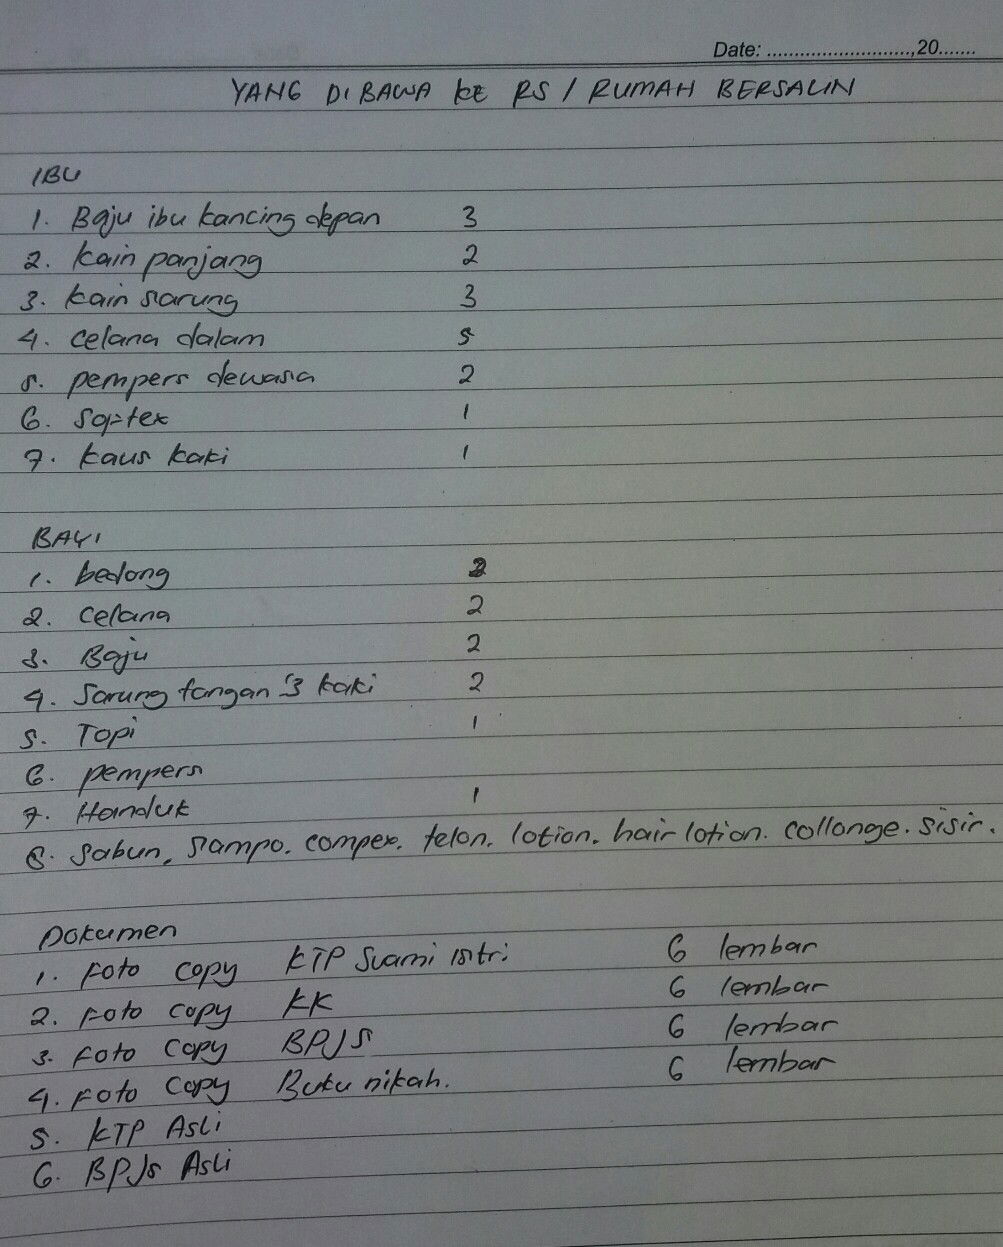 Date: ............................,20.......
YANG DIBAWA KE RS / RUMAH BERSALIN
IBU
1. Baju ibu kancing depan 3
2. Kain panjang 2
3. Kain sarung 3
4. celana dalam 5
5. pempers dewasa 2
6. Softex 1
7. kaus kaki 1
BAYI
1. bedong 2
2. Celana 2
3. Baju 2
4. Sarung tangan & kaki 2
5. Topi 1
6. pempers
7. Handuk 1
8. Sabun, Sampo. compex. telon. lotion. hair lotion. collonge. sisir.
Dokumen
1. Foto copy KTP Suami istri 6 lembar
2. Foto copy KK 6 lembar
3. Foto copy BPJS 6 lembar
4. Foto copy Buku nikah. 6 lembar
5. KTP Asli
6. BPJS Asli